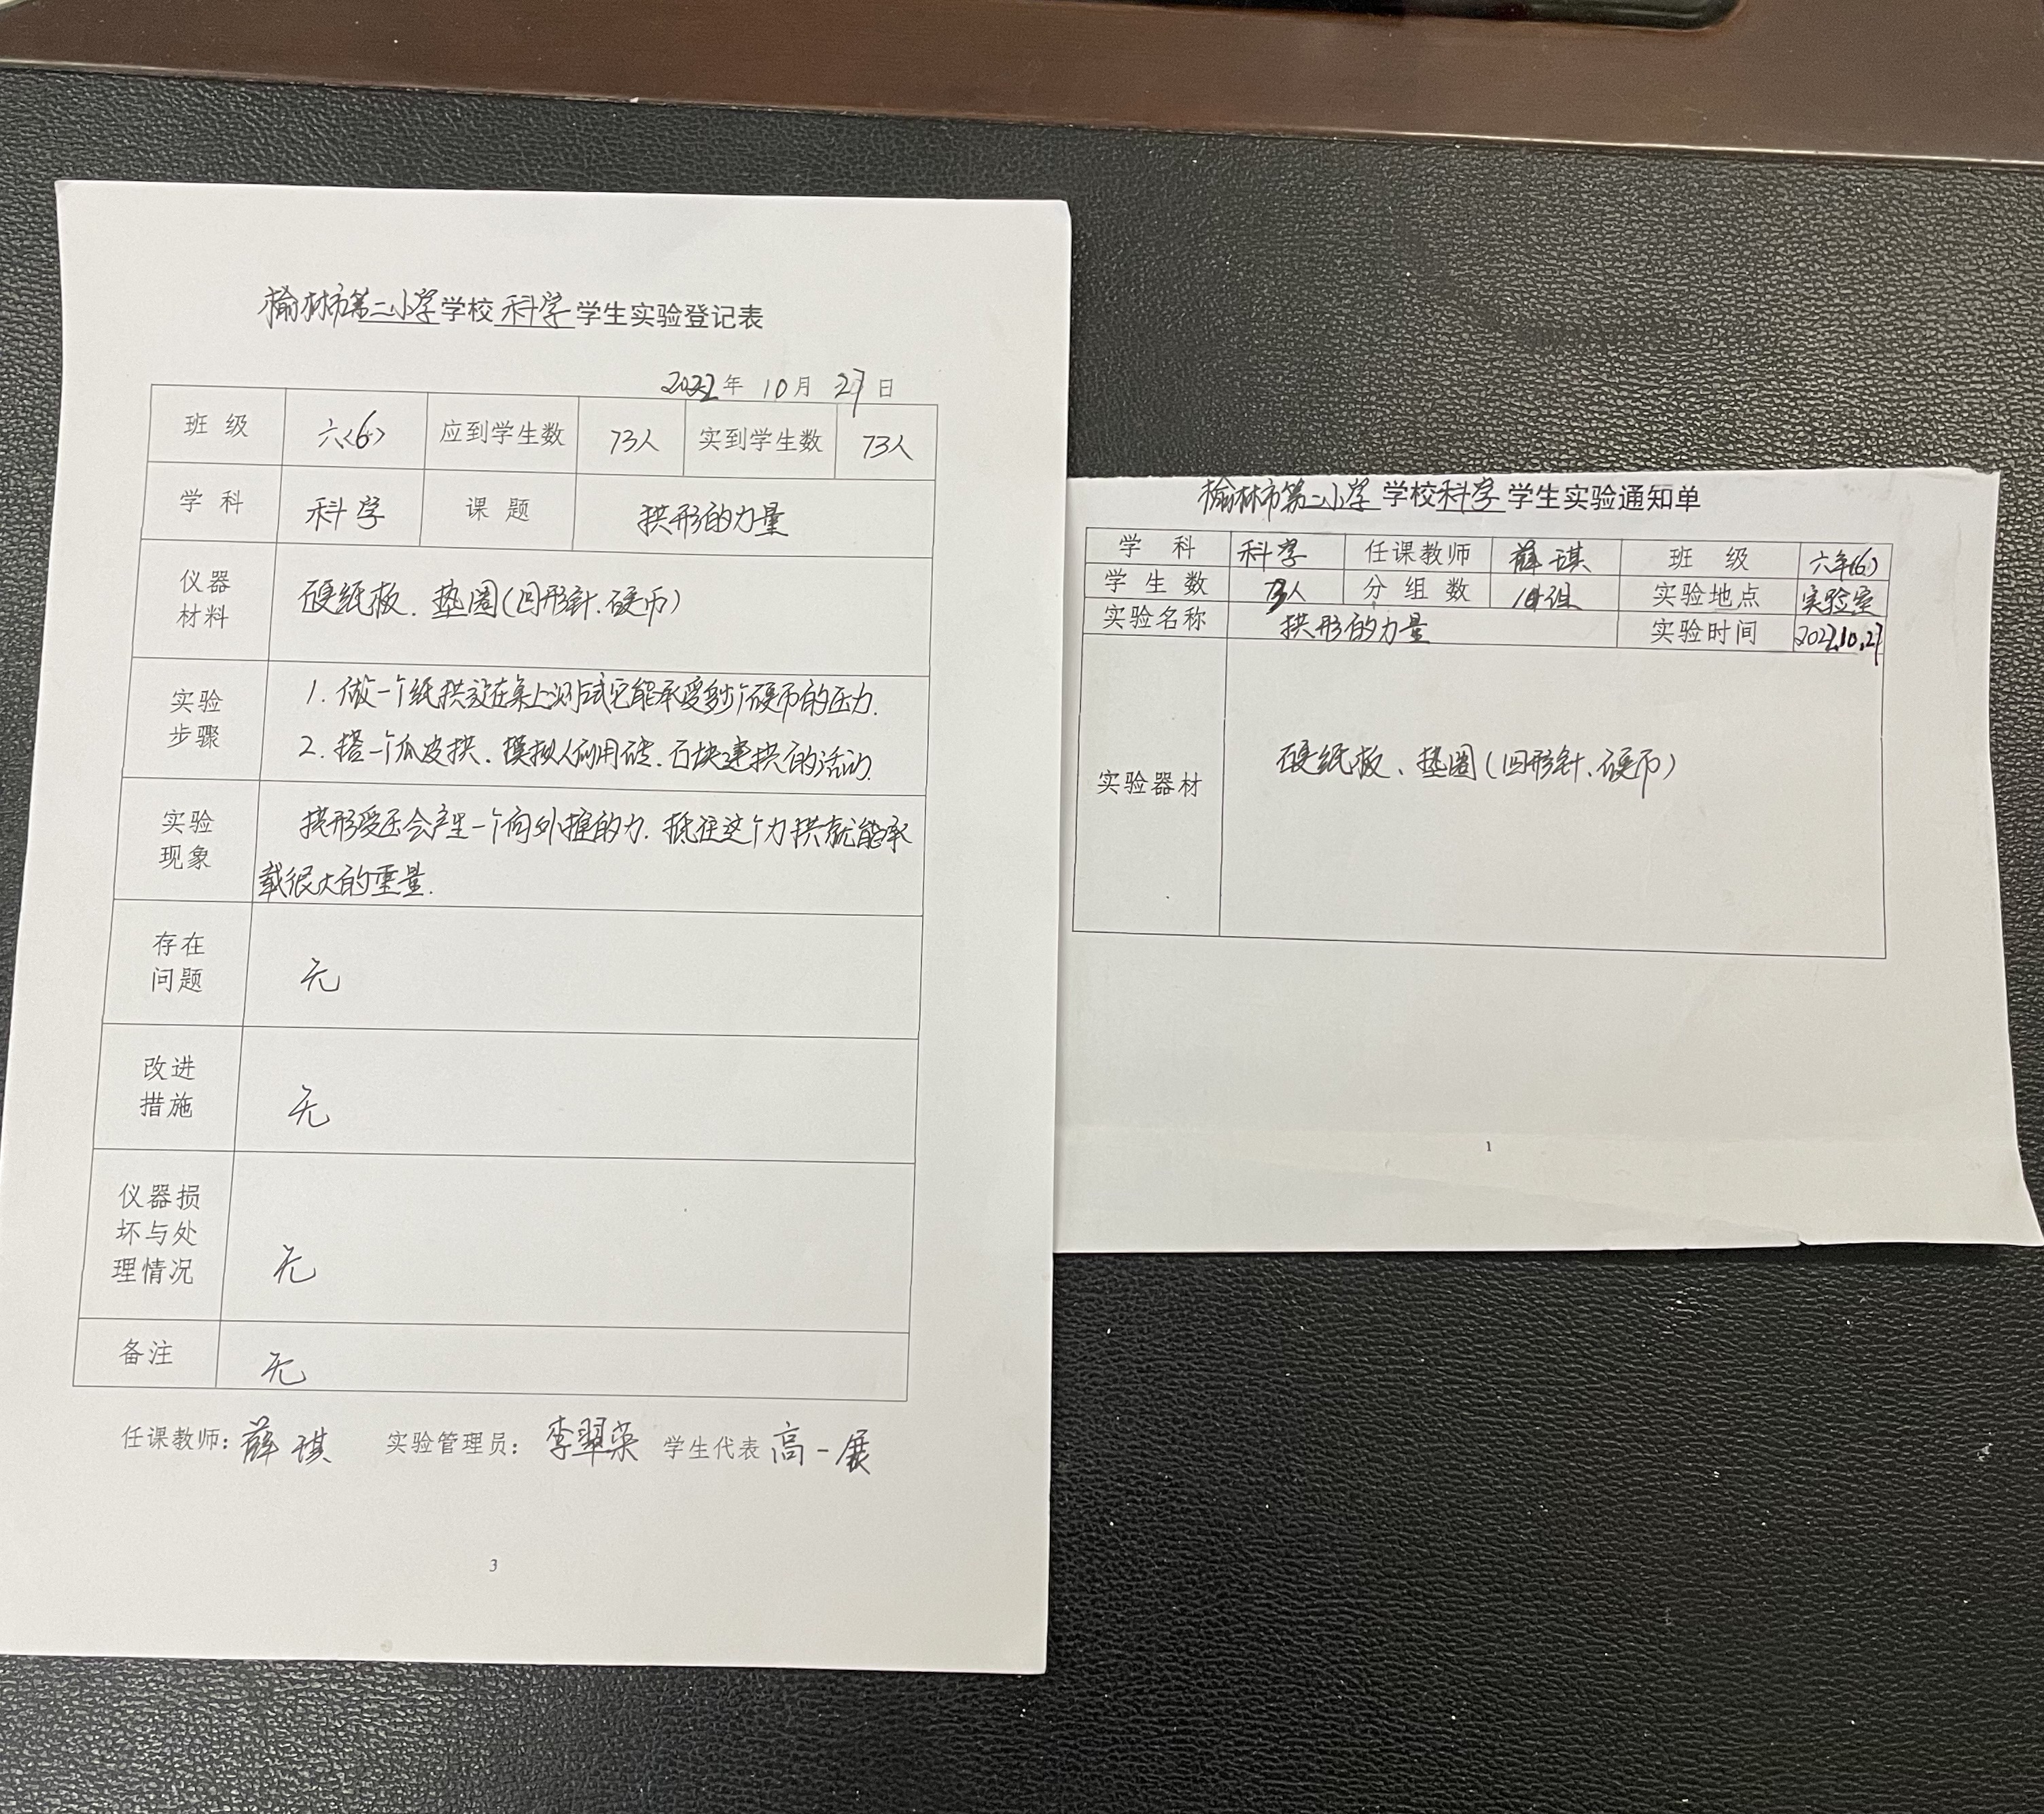 榆林市第二小学学校科学学生实验登记表
2022年 10月 27日
班级 六<6> 应到学生数 73人 实到学生数 73人
学科 科学 课题 拱形的力量
仪器材料 硬纸板、垫圈(回形针、硬币)
实验步骤 1.做一个纸拱放在桌上测试它能承受多少个硬币的压力.
2.搭一个瓜皮拱、模拟人们用砖、石块建拱的活动.
实验现象 拱形受压会产生一个向外推的力.抵住这个力拱就能承
载很大的重量.
存在问题 无
改进措施 无
仪器损坏与处理情况 无
备注 无
任课教师:薛琪 实验管理员:李翠荣 学生代表 高一展
3
榆林市第二小学学校科学学生实验通知单
学科 科学 任课教师 薛琪 班级 六年(6)
学生数 73人 分组数 组 实验地点 实验室
实验名称 拱形的力量 实验时间 2022.10.27
实验器材 硬纸板、垫圈(回形针、硬币)
1